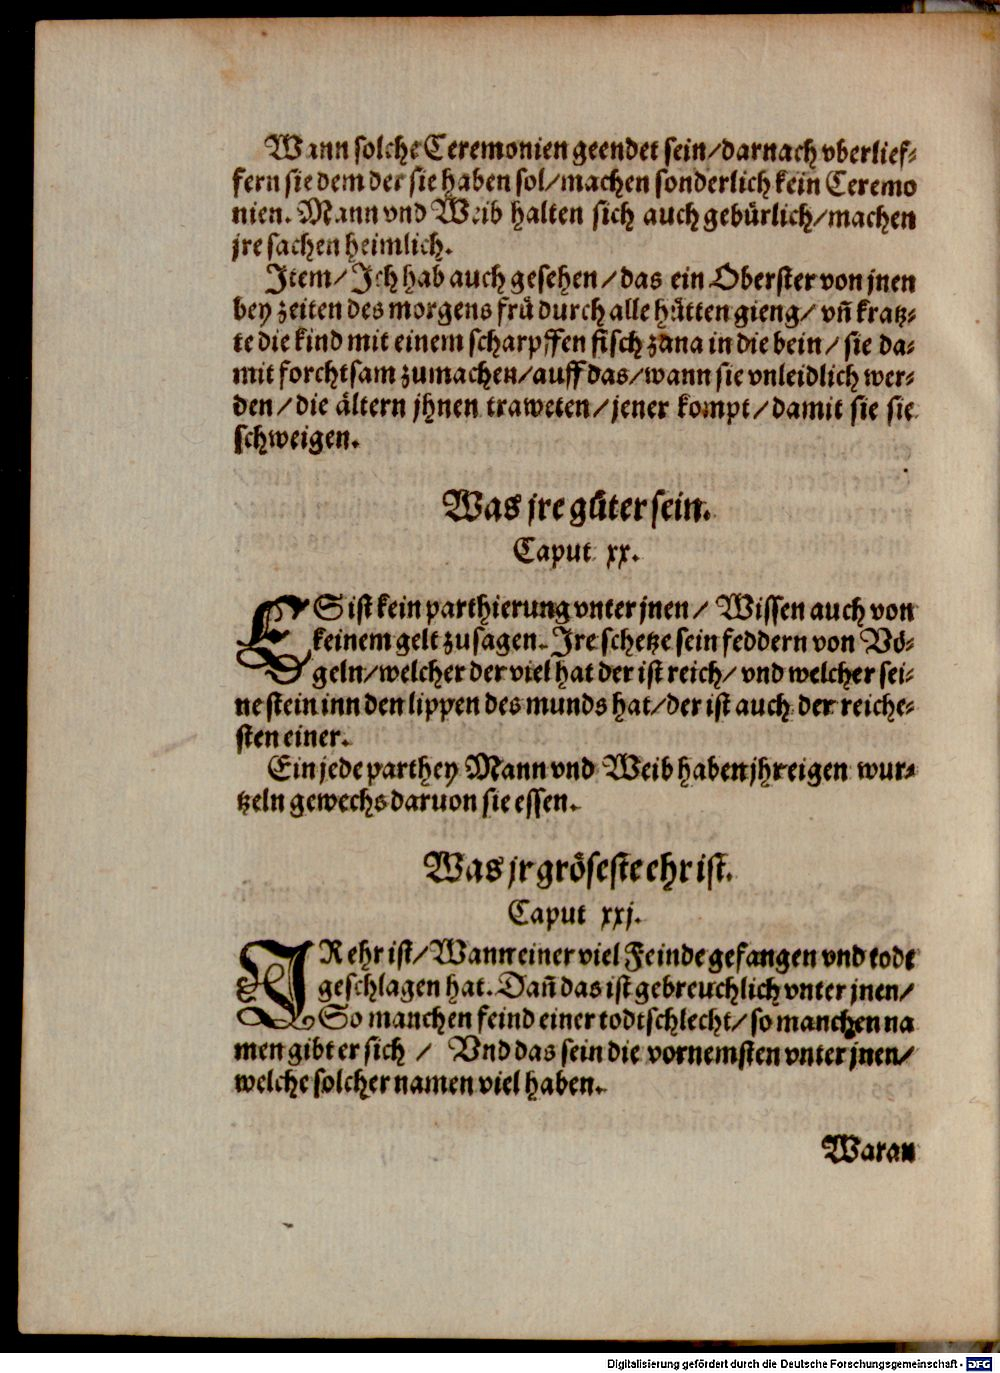 Wann solche Ceremonien geendet sein/darnach vberlief-
fern sie dem der sie haben sol/machen sonderlich kein Ceremo
nien. Mann vnd Weib halten sich auch gebürlich/machen
jre sachen heimlich.
Item/ Ich hab auch gesehen/das ein Oberster von jnen
bey zeiten des morgens frü durch alle hütten gieng/ vñ kratz-
te die kind mit einem scharpffen fisch zana in die bein/ sie da-
mit forchtsam zumachen/auff das/wann sie vnleidlich wer-
den/die ältern jhnen traweten/jener kompt/damit sie sie
schweigen.
Was jre güter sein.
Caput xx.
ES ist kein parthierung vnter jnen/ Wissen auch von
keinem gelt zu sagen. Ire schetze sein feddern von Vö-
geln/welcher der viel hat der ist reich/ vnd welcher sei-
ne stein inn den lippen des munds hat/der ist auch der reiche-
sten einer.
Ein jede parthey Mann vnd Weib haben jhr eigen wur-
tzeln gewechs daruon sie essen.
Was jr gröseste ehr ist.
Caput xxj.
IR ehr ist/Wann einer viel Feinde gefangen vnd todt
geschlagen hat. Dañ das ist gebreuchlich vnter jnen/
So manchen feind einer todtschlecht/so manchen na
men gibt er sich / Vnd das sein die vornemsten vnter jnen/
welche solcher namen viel haben.
Waran
Digitalisierung gefördert durch die Deutsche Forschungsgemeinschaft - DFG